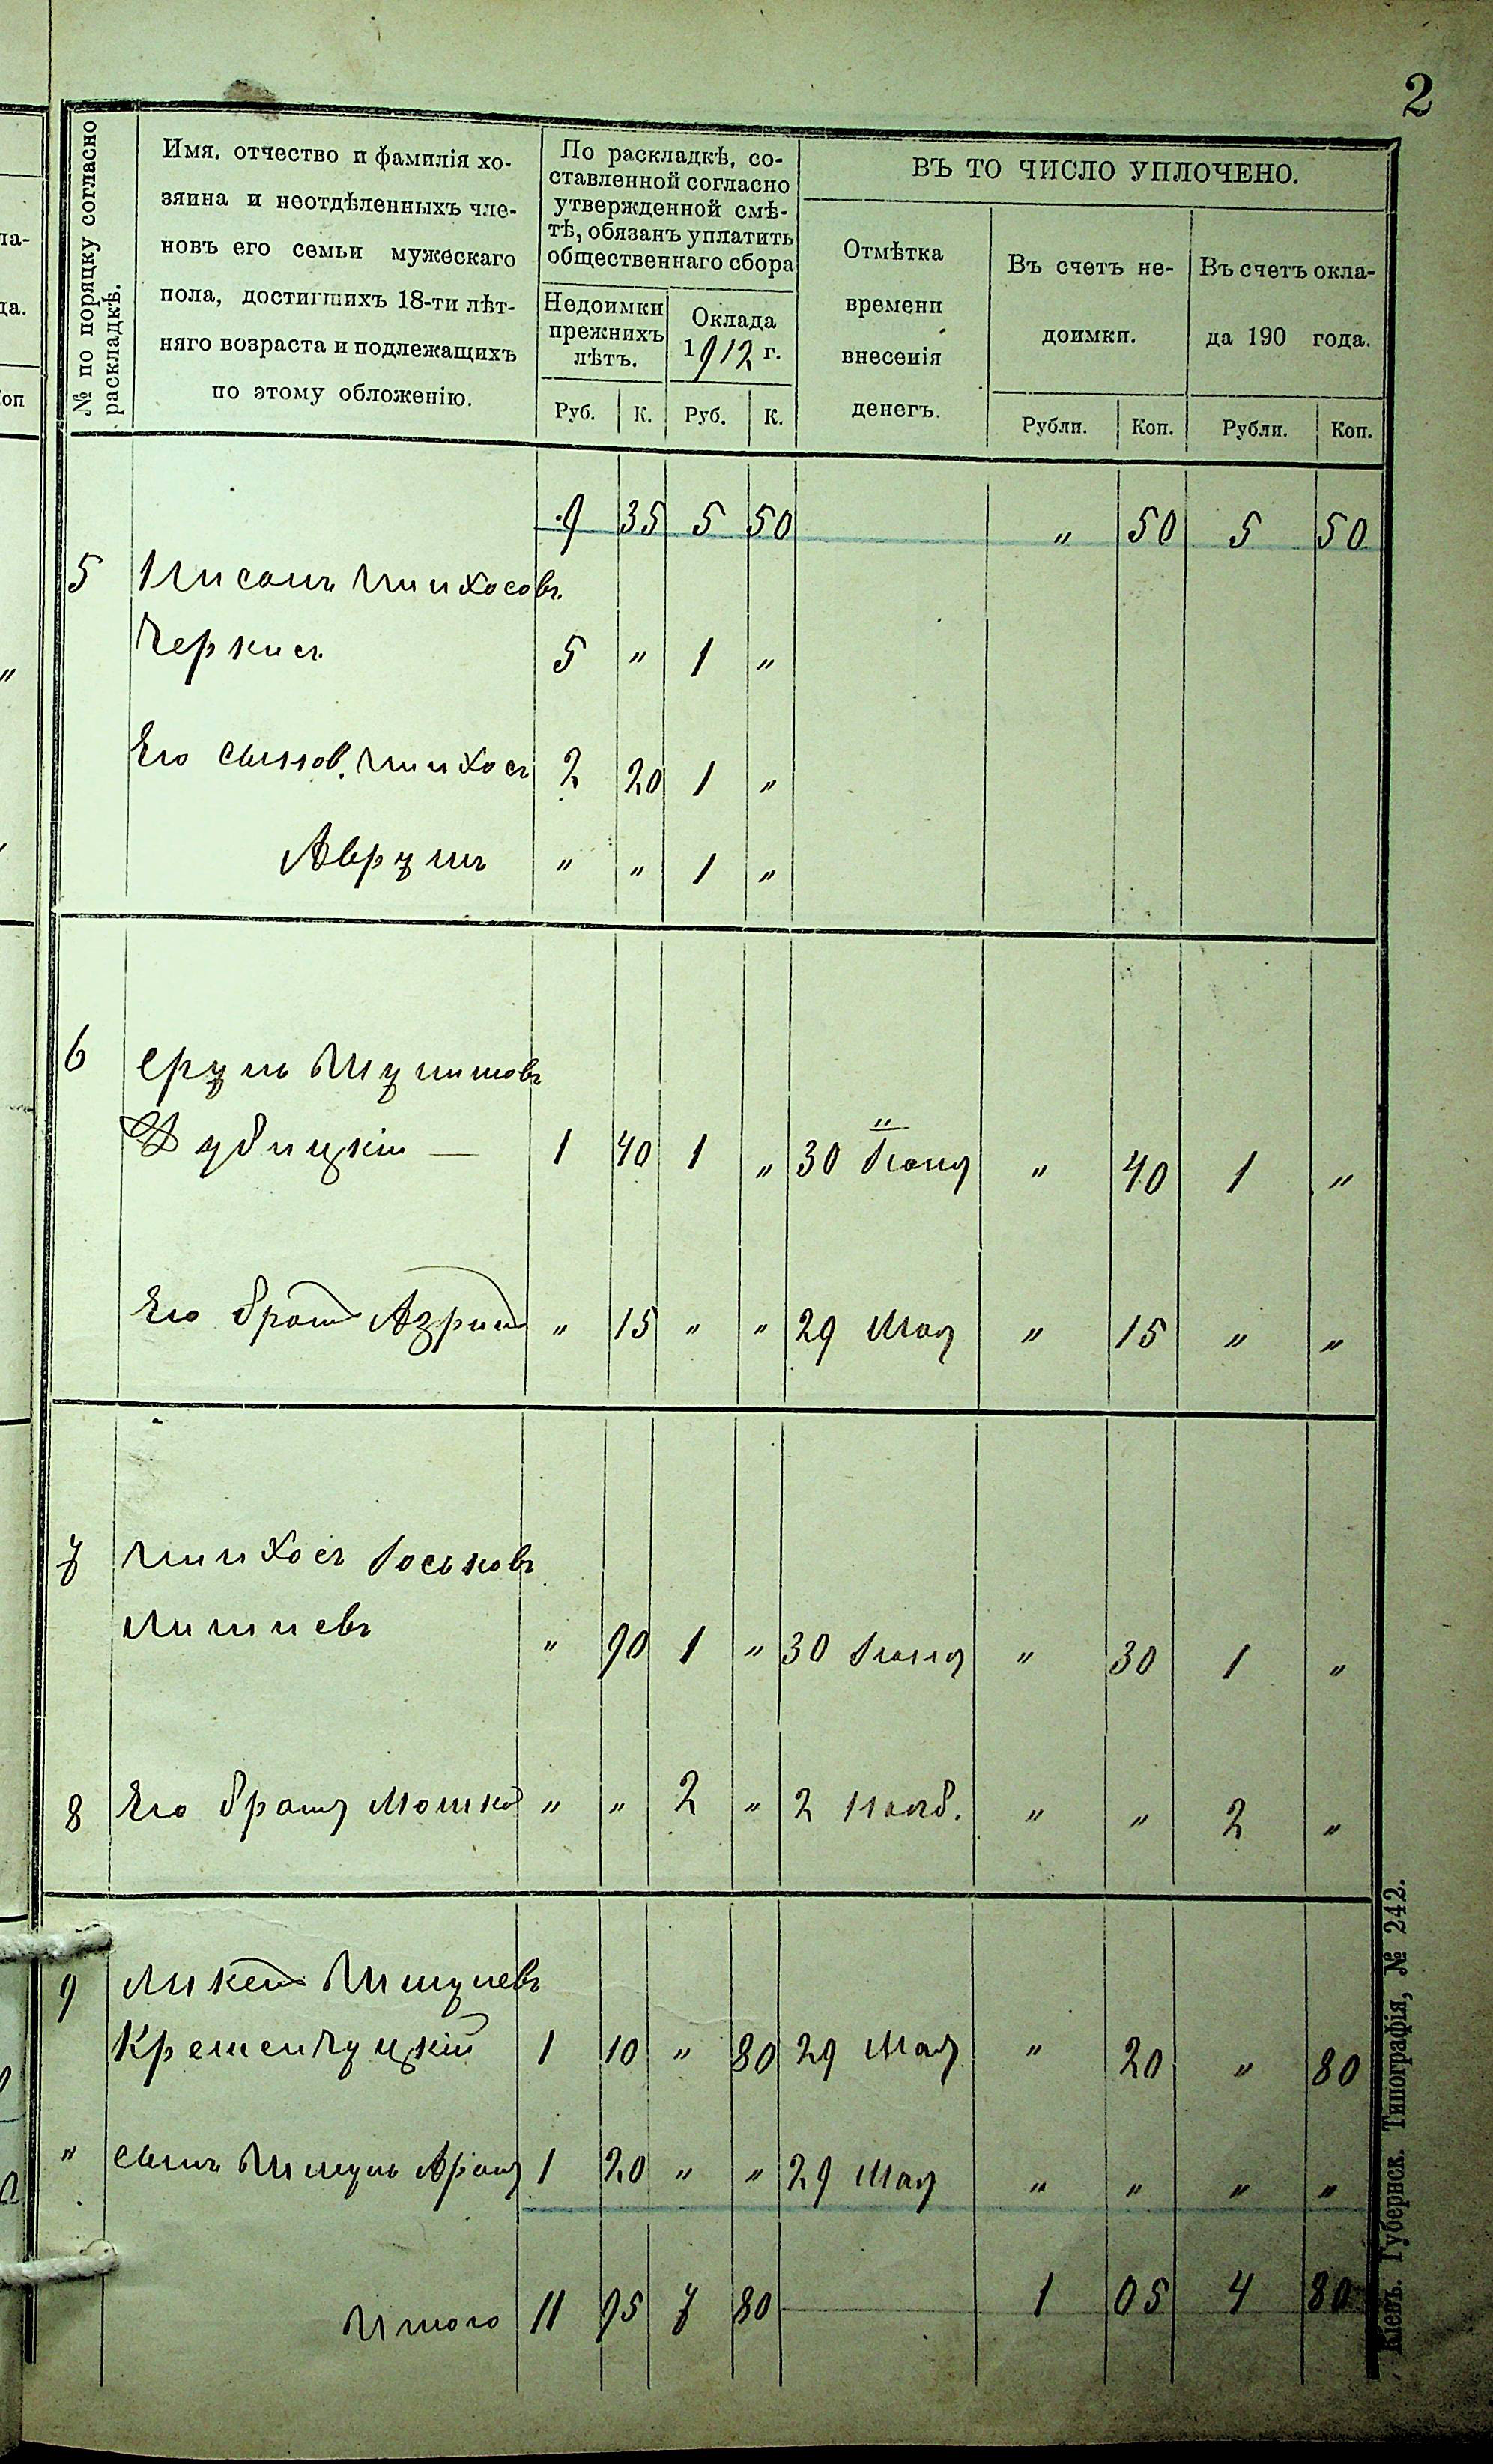 2
№ по поряцку согласно
раскладкѣ.
Имя. отчество и фамилія хо-
зяина и неотдѣленныхъ чле-
новъ его семьи мужескаго
пола, достигшихъ 18-ти лѣт-
няго возраста и подлежащихъ
по этому обложенію.
По раскладкѣ, со-
ставленной согласно
утвержденной смѣ-
тѣ, обязанъ уплатить
общественнаго сбора
Недоимки
прежнихъ
лѣтъ.
Оклада
1912 г.
ВЪ ТО ЧИСЛО УПЛОЧЕНО.
Отмѣтка
времени
внесенія
денегъ.
Въ счетъ не-
доимки.
Въ счетъ окла-
да 190 года.
Руб. К. Руб. К. Рубли. Коп. Рубли. Коп.
9 35 5 50 " 50 5 50
5 Нисонъ Пинхосовъ
Черкисъ 5 " 1 "
Его сынов. Пинхосъ 2 20 1 "
Аврумъ " " 1 "
6 Сруль
Дубицкій — 1 40 1 " 30 Іюня " 40 1 "
Его братъ Азрилъ " 15 " " 29 Мая " 15 " "
7 Пинхосъ Іоськовъ
" 90 1 " 30 Іюня " 30 1 "
8 Его братъ Мошко " " 2 " 2 Нояб. " " 2 "
9 Шмулевъ
Кременчуцкій 1 10 " 80 29 Мая " 20 " 80
" сынъ Шмуль Аронъ 1 20 " " 29 Мая " " " "
Итого 11 95 7 80 1 05 4 80
Кіевъ. Губернск. Типографія, № 242.